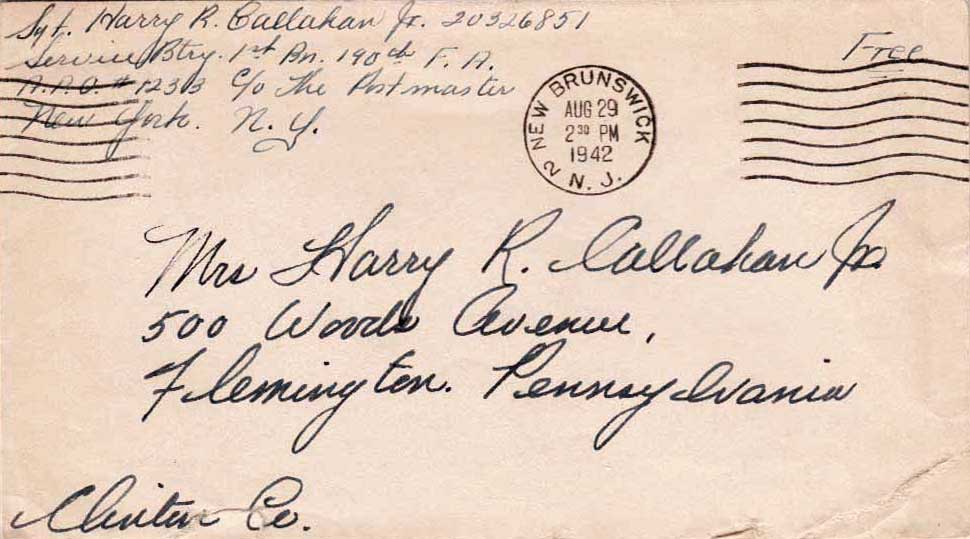 Sgt. Harry R. Callahan Jr. 20326851
Service Btry. 1st Bn. 190th F. A.
A.P.O. # 1233 c/o The Postmaster
New York. N. Y.
Free
NEW BRUNSWICK
AUG 29
2 30 PM
1942
2 N. J.
Mrs Harry R. Callahan Jr.
500 Woods Avenue,
Flemington. Pennsylvania
Clinton Co.